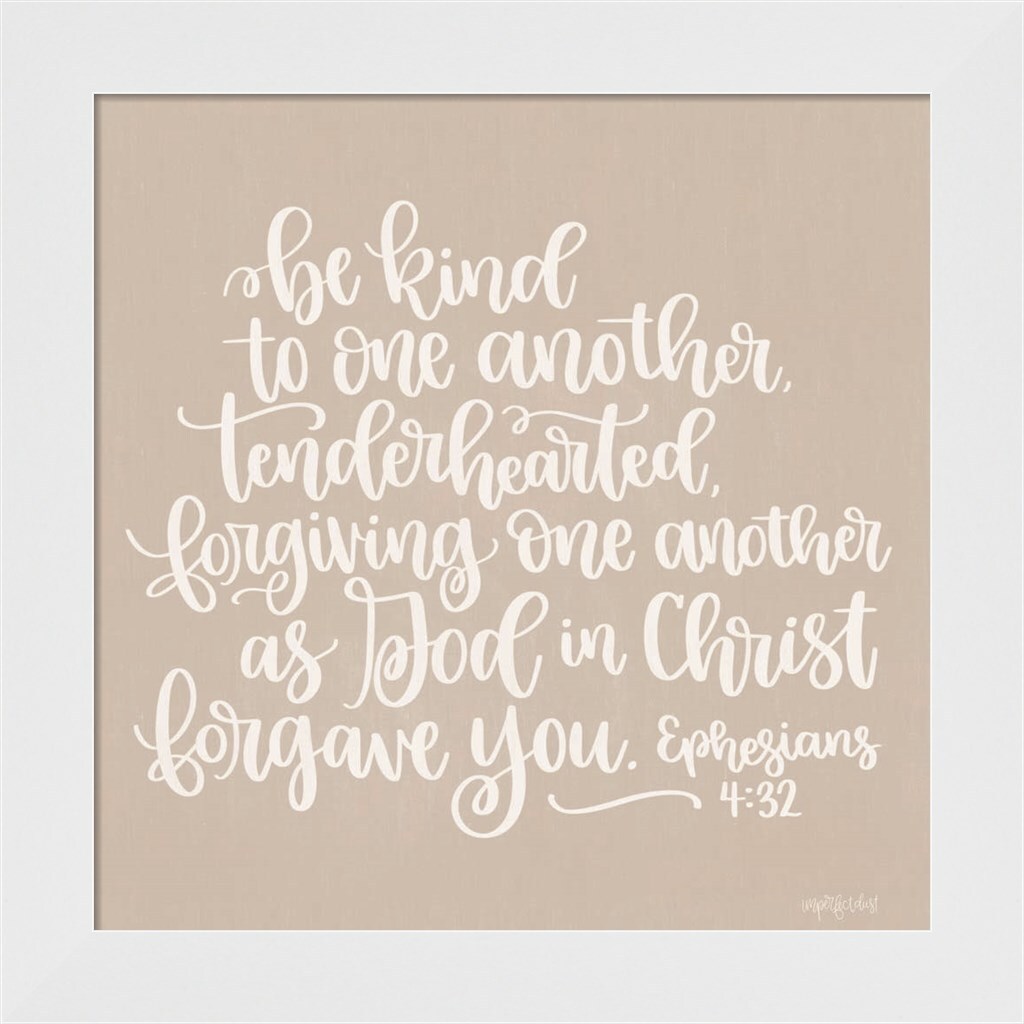 be kind
to one another,
tenderhearted,
forgiving one another
as God in Christ
forgave you. Ephesians
4:32
imperfectdust